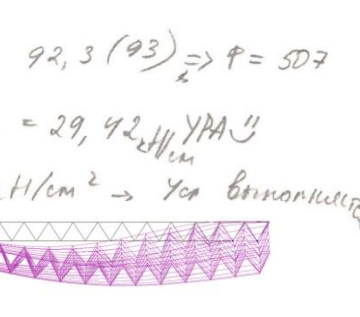 92,3 (93) => φ = 507
= 29,42 кН/см УРА
кН/см² → Усл выполняется